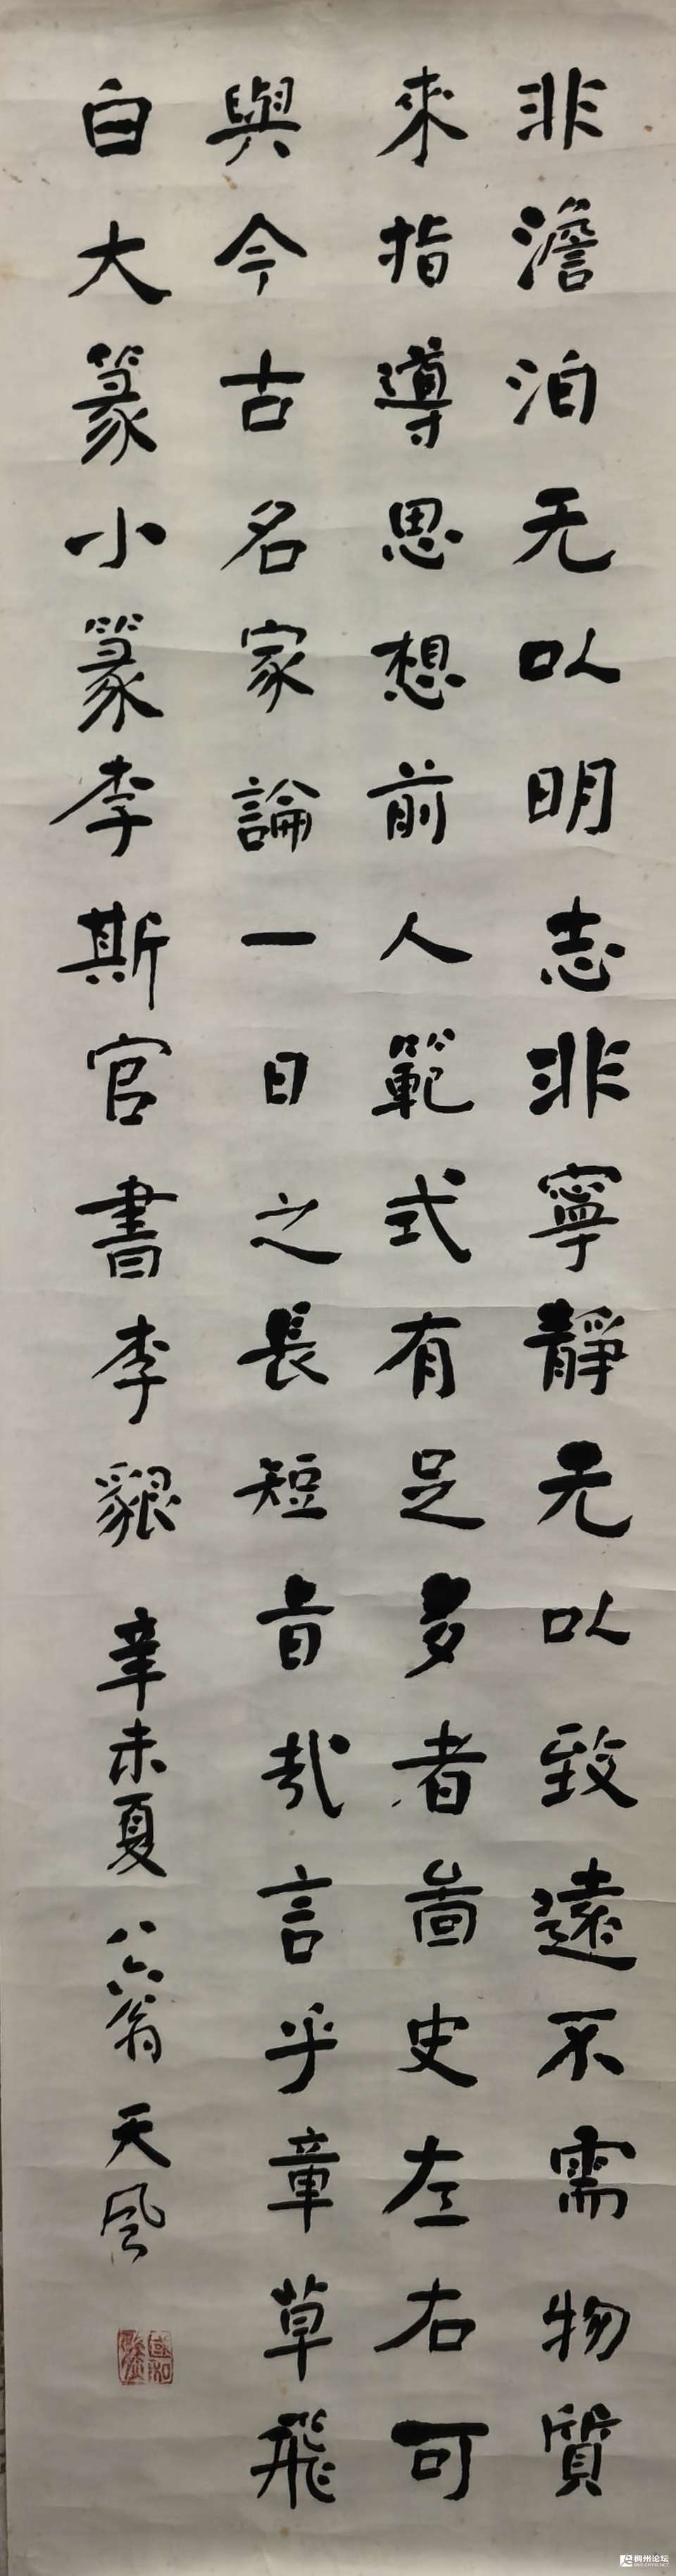 非澹泊无以明志非寧靜无以致遠不需物質
來指導思想前人範式有足多者啚史左右可
與今古名家論一日之長短旨哉言乎章草飛
白大篆小篆李斯官書李邈 辛未夏 八六翁 天風
稠州论坛